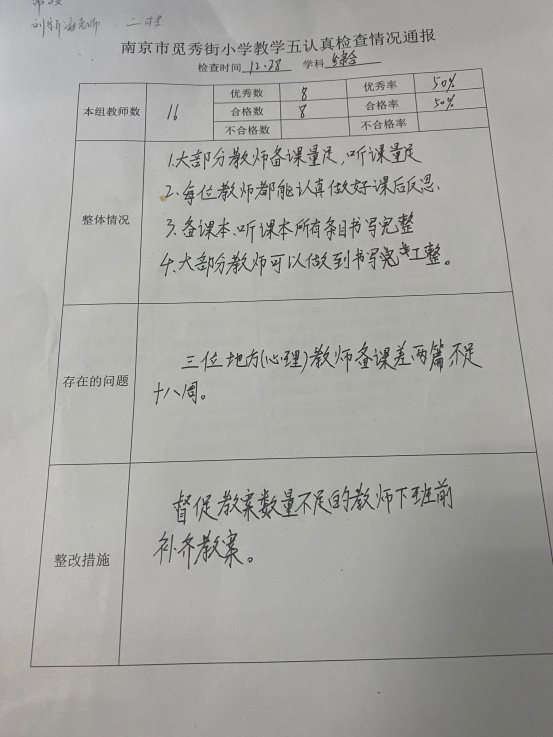 南京市觅秀街小学教学五认真检查情况通报
检查时间 12.28 学科 综合
本组教师数 16 优秀数 8 优秀率 50%
合格数 8 合格率 50%
不合格数 不合格率
整体情况
1.大部分教师备课量足,听课量足
2.每位教师都能认真做好课后反思.
3.备课本、听课本所有条目书写完整
4.大部分教师可以做到书写工整。
存在的问题
三位地方(心理)教师备课差两篇不足
十八周。
整改措施
督促教案数量不足的教师下班前
补齐教案。